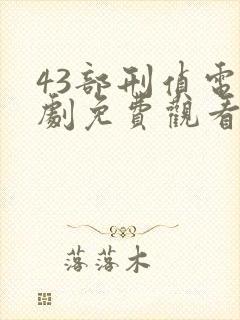 43部刑偵電
劇免費觀看
落落木